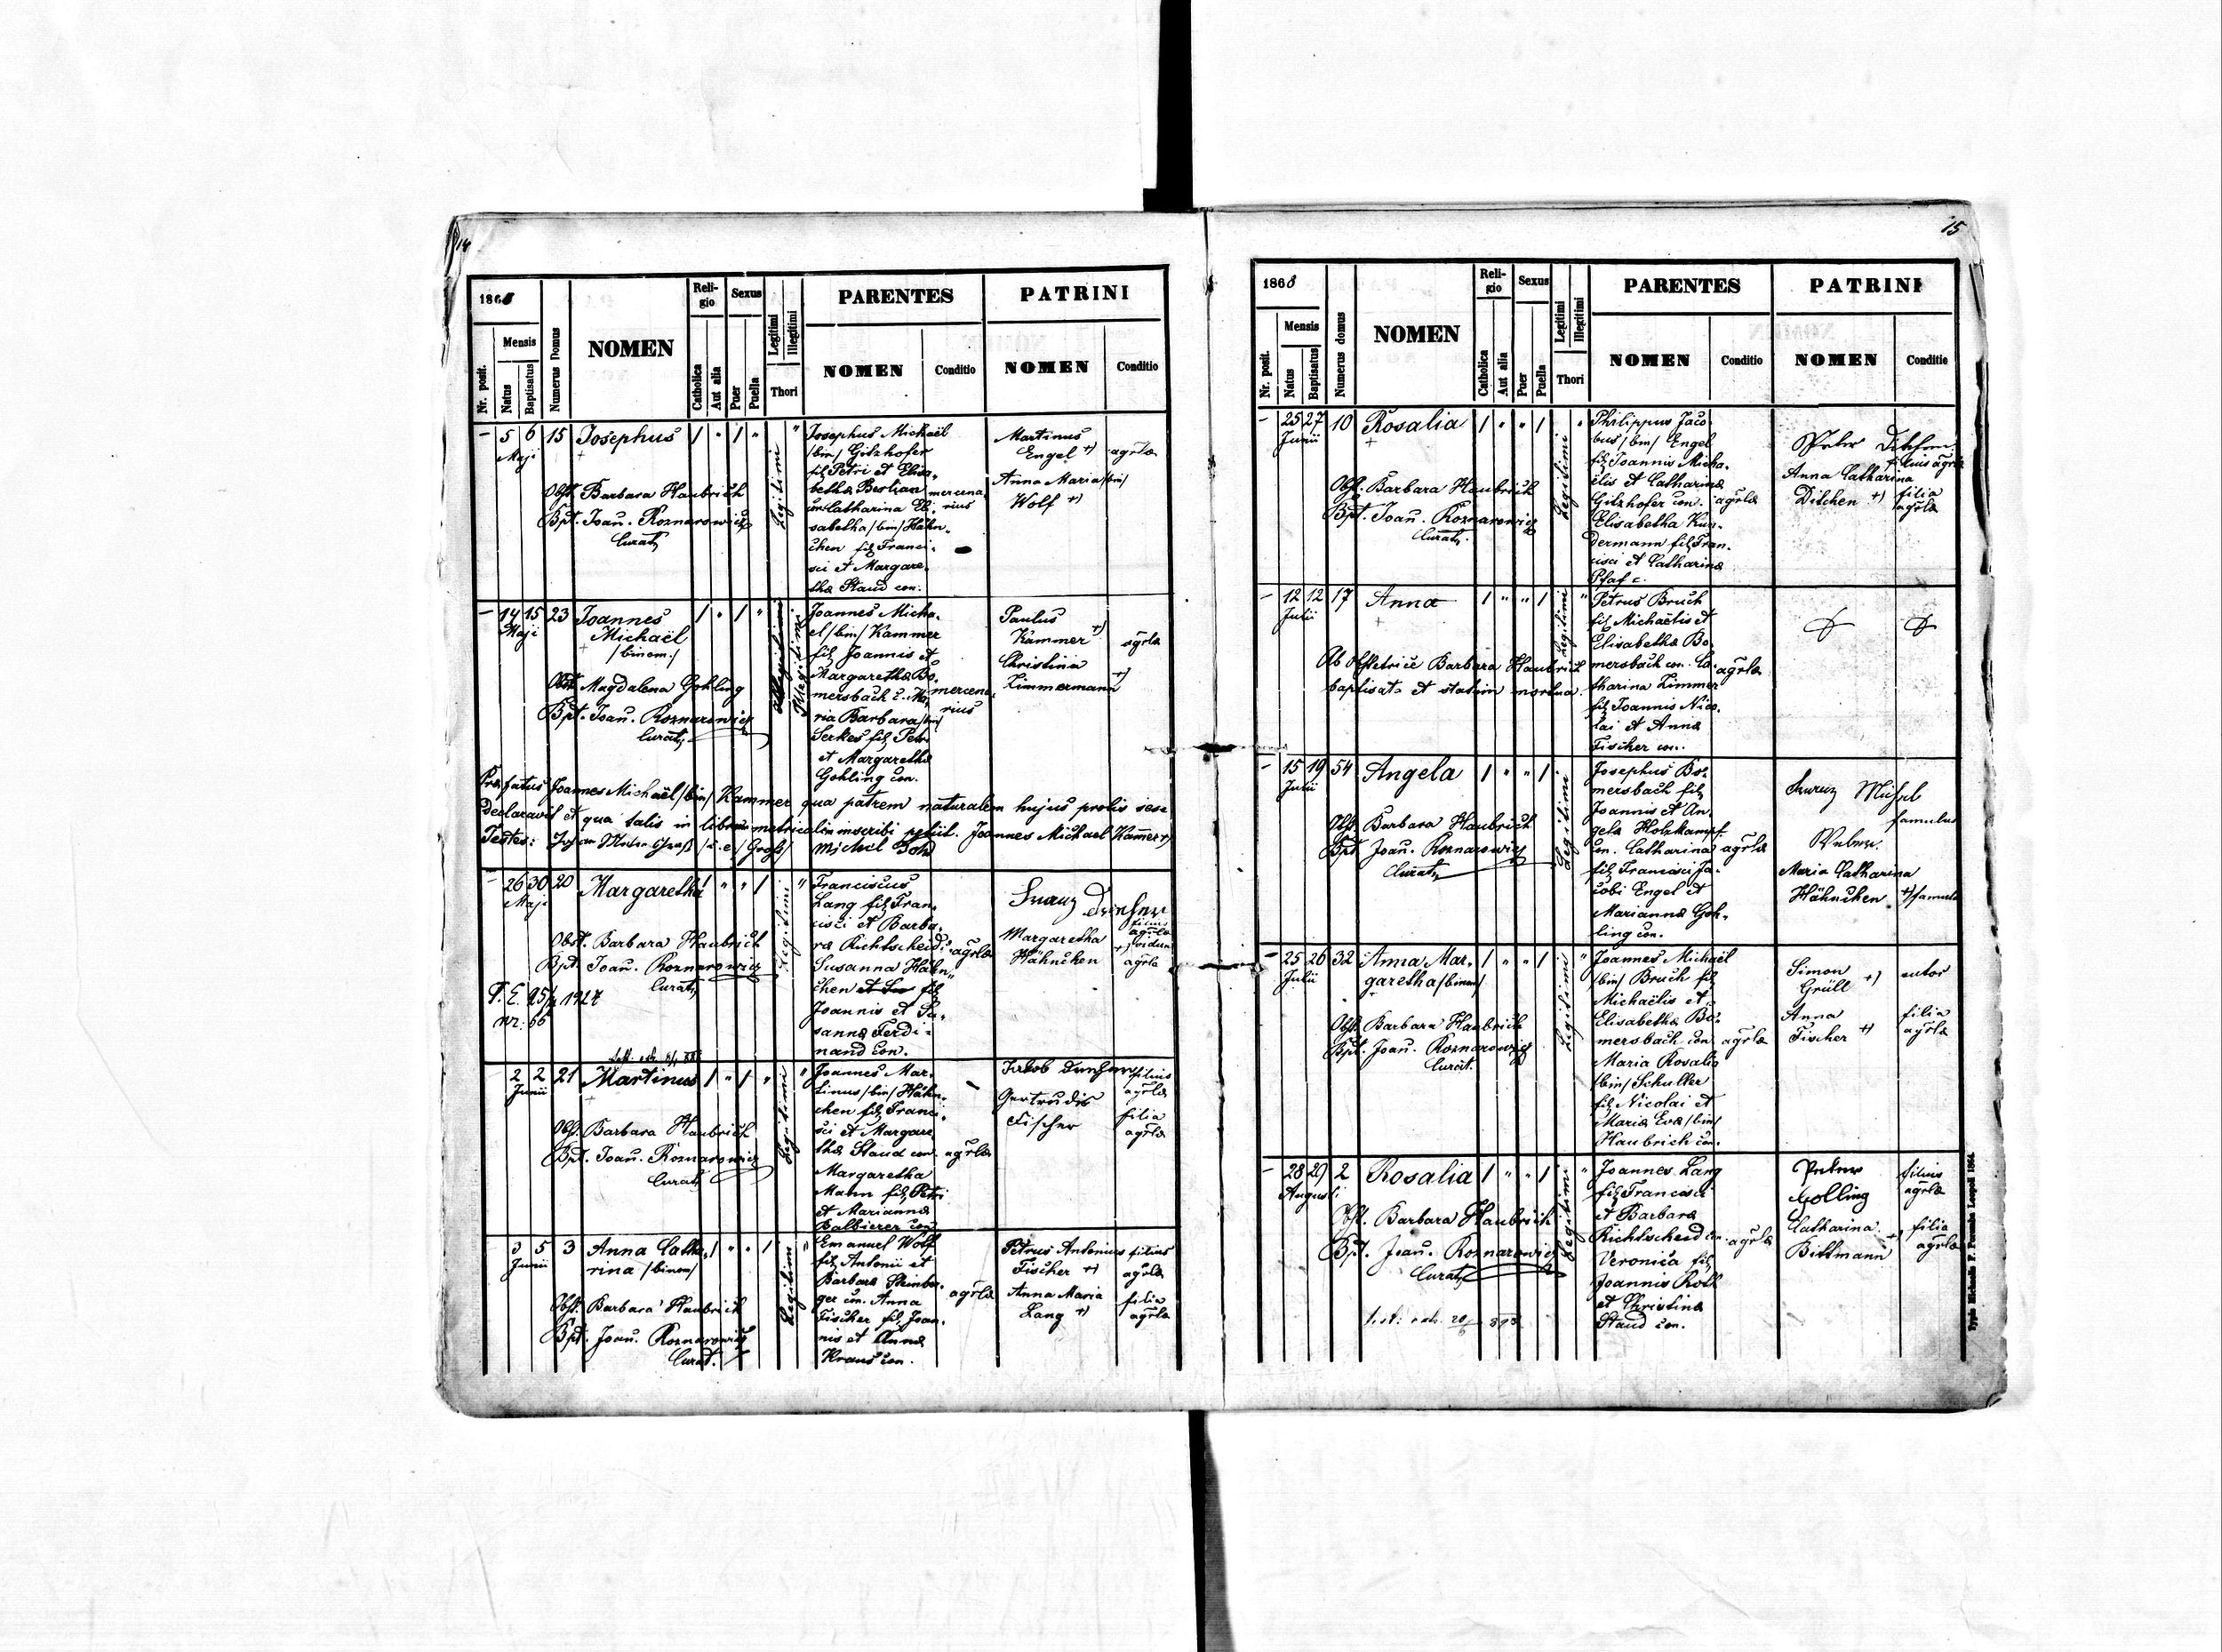 14
1868
Nr. posit.
Mensis
Natus
Baptisatus
Numerus Domus
NOMEN
Reli-
gio
Catholica
Aut alia
Sexus
Puer
Puella
Legitimi
Illegitimi
Thori
PARENTES
NOMEN
Conditio
PATRINI
NOMEN
Conditio
– 5 6 15 Josephus / " / " "
Maji
Obst. Barbara Haubrich
Bpt. Joan. Roznarowicz
Curat.
Legitimi
Josephus Michaël
/bin/ Gitzhofer
fil. Petri et Elisa-
betha Bestian
con. Catharina Eli-
sabetha /bin/ Hähn-
chen fil. Franci-
sci et Margare-
tha Staud con.
mercena
rius
Martinus
Engel +)
Anna Maria /bin/
Wolf +)
agrla
– 14 15 23 Joannes / " / "
Maji
Michaël
/binom./
Obst. Magdalena Gohling
Bpt. Joan. Roznarowicz
Curat.
Illegitimi
Joannes Micha-
el /bin/ Kammer
fil. Joannis et
Margaretha Bo-
mersbach c. Ma-
ria Barbara /bin/
Serkes fil. Petri
et Margaretha
Gohling con.
mercena
rius
Paulus
Kammer +)
Christina
Zimmermann +)
agrla
Præfatus Joannes Michaël /bin/ Kammer qua patrem naturalem hujus prolis sese
declaravit et qua talis in librum metricalem inscribi petiit. Joannes Michael Kammer +)
Testes: Johan /i. e./ Groß/ Michel
– 26 30 20 Margaretha / " " / "
Maji
Obst. Barbara Haubrich
Bpt. Joan. Roznarowicz
Curat.
1927
nr. 66
Legitimi
Franciscus
Lang fil. Fran-
cisci et Barba-
ra Richtscheid c.
Susanna Hähn-
chen et Su fil.
Joannis et Su-
sanna Ferdi-
nand con.
agrla
Franz
filius
agrla
Margaretha
Hähnchen +)
vidua
agrla
2 2 21 Martinus / " / " "
Junii
Obst. Barbara Haubrich
Bpt. Joan. Roznarowicz
Curat.
Legitimi
Joannes Mar-
tinus /bin/ Hähn-
chen fil. Franci-
sci et Margare
tha Staud con.
Margaretha
Mann fil. Petri
et Marianna
Balbierer con.
agrla
Jakob
filius
agrla
Gertrudis
Fischer
filia
agrla
3 5 3 Anna Catha- / " " / "
Junii
rina /binom/
Obst. Barbara Haubrich
Bpt. Joan. Roznarowicz
Curat.
Legitimi
Emanuel Wolf
fil. Antonii et
Barbara Steinber-
ger con. Anna
Fischer fil. Joan-
nis et Anna
Kraus con.
agrla
Petrus Antonius
Fischer +)
filius
agrla
Anna Maria
Lang +)
filia
agrla
15
1868
Nr. posit.
Mensis
Natus
Baptisatus
Numerus domus
NOMEN
Reli-
gio
Catholica
Aut alia
Sexus
Puer
Puella
Legitimi
Illegitimi
Thori
PARENTES
NOMEN
Conditio
PATRINI
NOMEN
Conditio
– 25 27 10 Rosalia / " " / "
Junii
Obst. Barbara Haubrich
Bpt. Joan. Roznarowicz
Curat.
Legitimi
Philippus Jaco-
bus /bin/ Engel
fil. Joannis Micha-
elis et Catharina
Gitzhofer con.
Elisabetha Kun-
dermann fil. Fran-
cisci et Catharina
Pfaf c.
agrla
Peter
filius agrla
Anna Catharina
Ditchen +)
filia
agrla
– 12 12 17 Anna / " " / "
Julii
Ab obstetrice Barbara Haubrich
baptisata et statim mortua.
Legitimi
Petrus Bruch
fil. Michaëlis et
Elisabetha Bo-
mersbach con. Ca-
tharina Zimmer
fil. Joannis Nico-
lai et Anna
Fischer con.
agrla
– 15 19 54 Angela / " " /
Julii
Obst. Barbara Haubrich
Bpt. Joan. Roznarowicz
Curat.
Legitimi
Josephus Bo-
mersbach fil.
Joannis et An-
gela Holzkampf
con. Catharina
fil. Francisci Ja-
cobi Engel et
Marianna Goh-
ling con.
agrla
famulus
Maria Catharina
Hähnchen +)
famula
– 25 26 32 Anna Mar- / " " / "
Julii
garetha /binom/
Obst. Barbara Haubrich
Bpt. Joan. Roznarowicz
Curat.
Legitimi
Joannes Michaël
/bin/ Bruch fil.
Michaëlis et
Elisabetha Bo-
mersbach con.
Maria Rosalia
/bin/ Schuller
fil. Nicolai et
Maria Eva /bin/
Haubrich con.
agrla
Simon
Grüll +)
sutor
Anna
Fischer +)
filia
agrla
– 28 29 2 Rosalia / " " / "
Augusti
Obst. Barbara Haubrich
Bpt. Joan. Roznarowicz
Curat.
Legitimi
Joannes Lang
fil. Francisci
et Barbara
Richtscheid con.
Veronica fil.
Joannis Roth
et Christina
Staud con.
agrla
Peter
Golling
filius
agrla
Catharina
Bittmann +)
filia
agrla
Typis Michaelis F. Poremba Leopoli 1864.